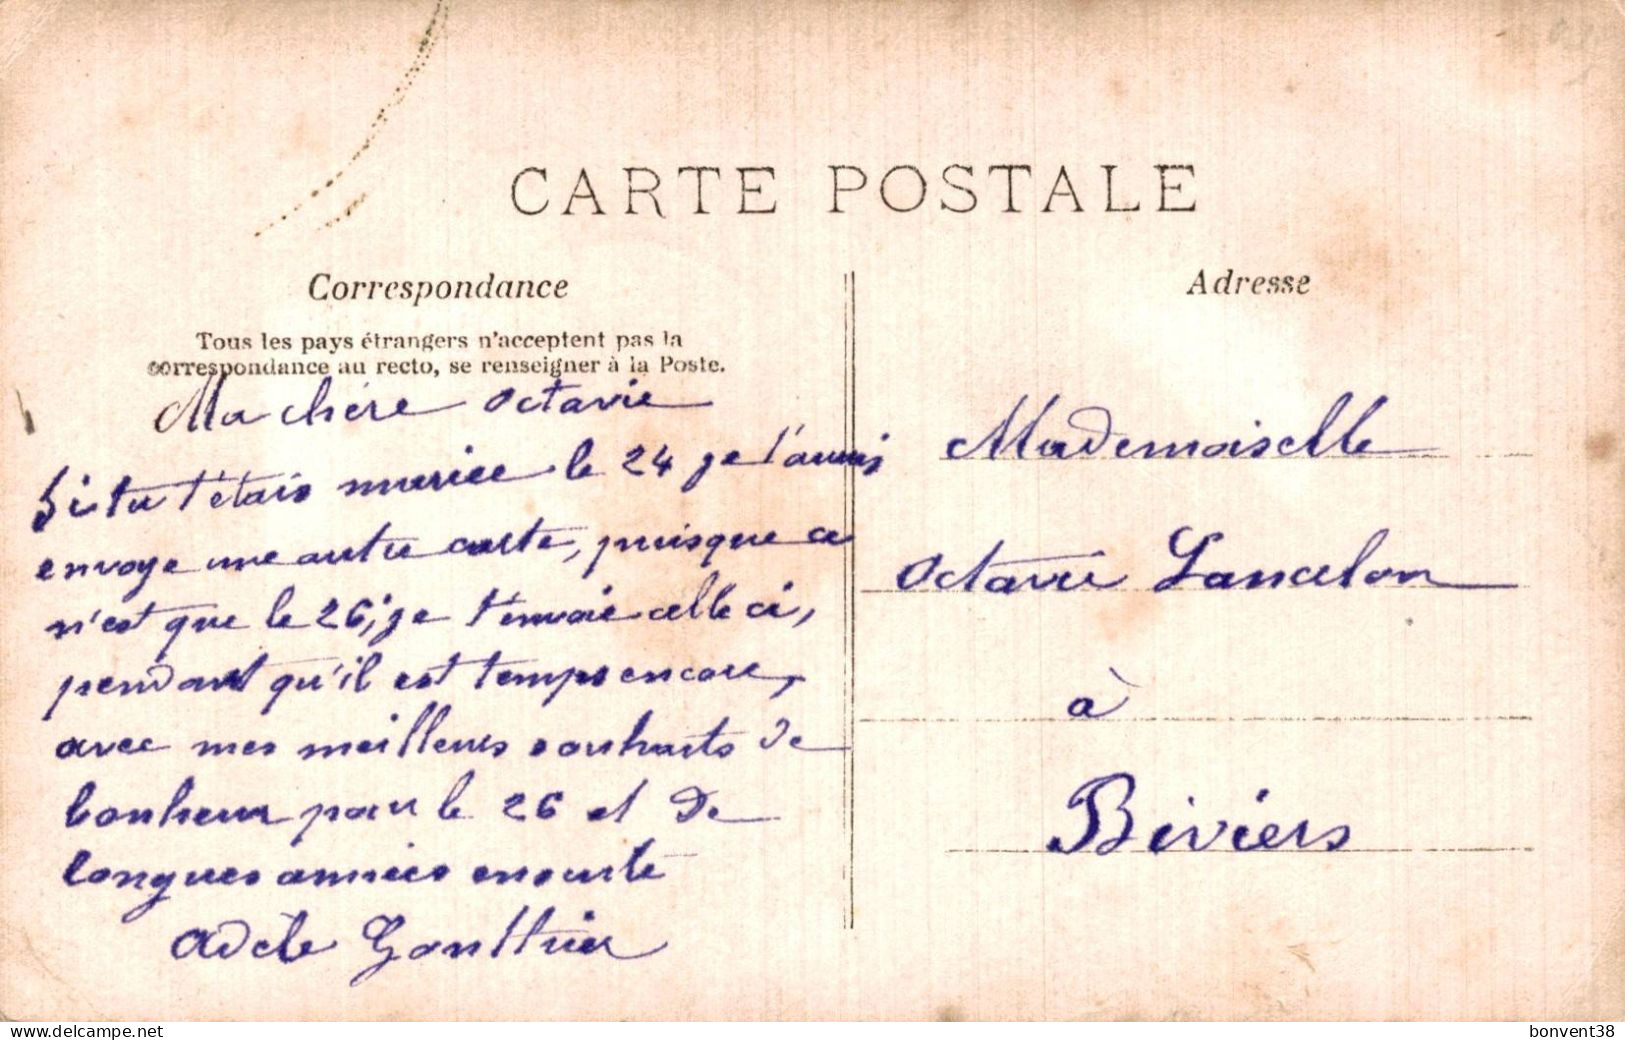 CARTE POSTALE
Correspondance
Tous les pays étrangers n'acceptent pas la
correspondance au recto, se renseigner à la Poste.
Ma chère Octavie
Si tu t'étais mariée le 24 je t'aurais
envoye une autre carte, puisque ce
n'est que le 26, je t'envoie celle ci,
pendant qu'il est temps encore,
avec mes meilleurs souhaits de
bonheur pour le 26 et de
longues années ensuite
Adèle Gonthier
Adresse
Mademoiselle
Octavie Lancelon
à
Biviers
bonvent38